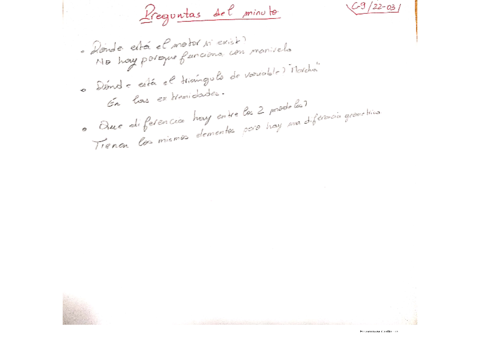 Preguntas del minuto
G9/22-03/
• Donde está el motor si exist?
No hay porque funciona con manivela
• Dónde está el triángulo de variable? "Marcha"
En las extremidades.
• Que diferencia hay entre los 2 modelos?
Tienen los mismos elementos pero hay una diferencia geometrica